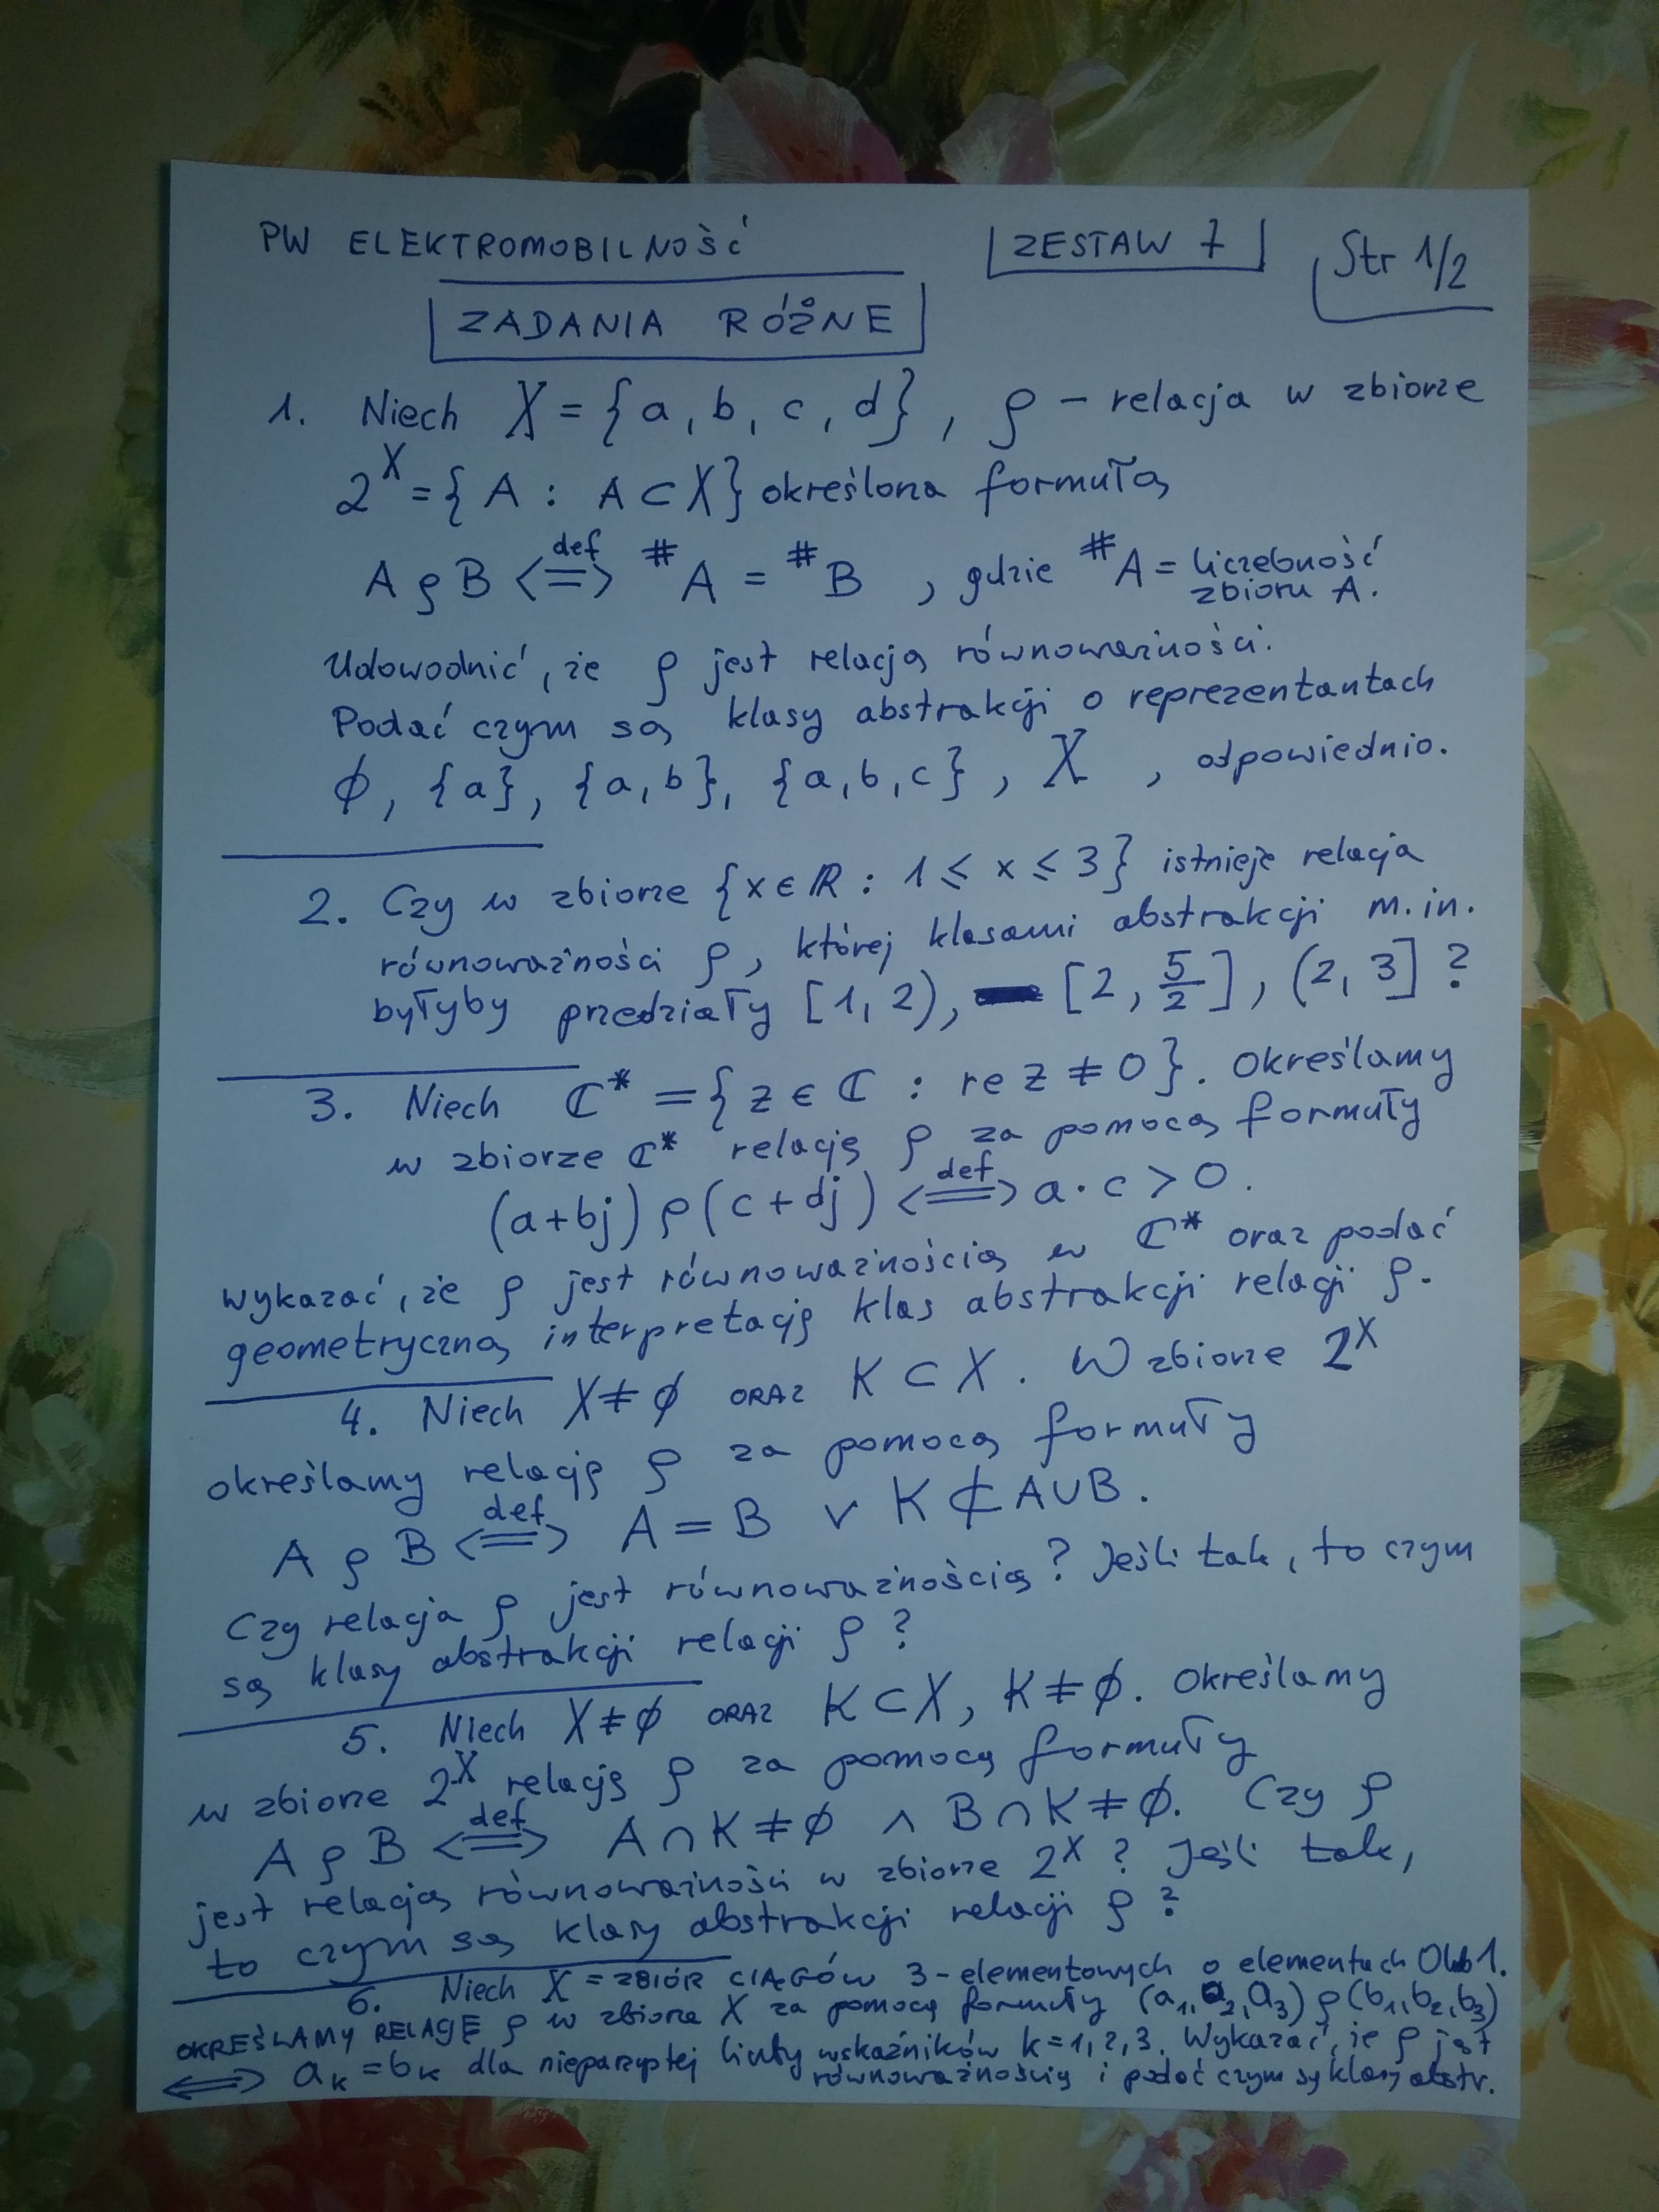 PW ELEKTROMOBILNOŚĆ
ZESTAW 7
Str 1/2
ZADANIA RÓŻNE
1. Niech X = {a, b, c, d}, ρ – relacja w zbiorze
2^X = {A : A ⊂ X} określona formułą
A ρ B <=def=> #A = #B, gdzie #A = liczebność
zbioru A.
Udowodnić, że ρ jest relacją równoważności.
Podać czym są klasy abstrakcji o reprezentantach
∅, {a}, {a, b}, {a, b, c}, X, odpowiednio.
2. Czy w zbiorze {x ∈ ℝ : 1 ≤ x ≤ 3} istnieje relacja
równoważności ρ, której klasami abstrakcji m.in.
byłyby przedziały [1, 2), [2, 5/2], (2, 3] ?
3. Niech ℂ* = {z ∈ ℂ : re z ≠ 0}. Określamy
w zbiorze ℂ* relację ρ za pomocą formuły
(a+bj) ρ (c+dj) <=def=> a · c > 0.
Wykazać, że ρ jest równoważnością w ℂ* oraz podać
geometryczną interpretację klas abstrakcji relacji ρ.
4. Niech X ≠ ∅ ORAZ K ⊂ X. W zbiorze 2^X
określamy relację ρ za pomocą formuły
A ρ B <=def=> A = B ∨ K ⊄ A∪B.
Czy relacja ρ jest równoważnością? Jeśli tak, to czym
są klasy abstrakcji relacji ρ ?
5. Niech X ≠ ∅ ORAZ K ⊂ X, K ≠ ∅. Określamy
w zbiorze 2^X relację ρ za pomocą formuły
A ρ B <=def=> A ∩ K ≠ ∅ ∧ B ∩ K ≠ ∅. Czy ρ
jest relacją równoważności w zbiorze 2^X ? Jeśli tak,
to czym są klasy abstrakcji relacji ρ ?
6. Niech X = ZBIÓR CIĄGÓW 3-elementowych o elementach 0 lub 1.
OKREŚLAMY RELACJĘ ρ w zbiorze X za pomocą formuły (a₁, a₂, a₃) ρ (b₁, b₂, b₃)
<=> aₖ = bₖ dla nieparzystej liczby wskaźników k = 1, 2, 3. Wykazać, że ρ jest
równoważnością i podać czym są klasy abstr.